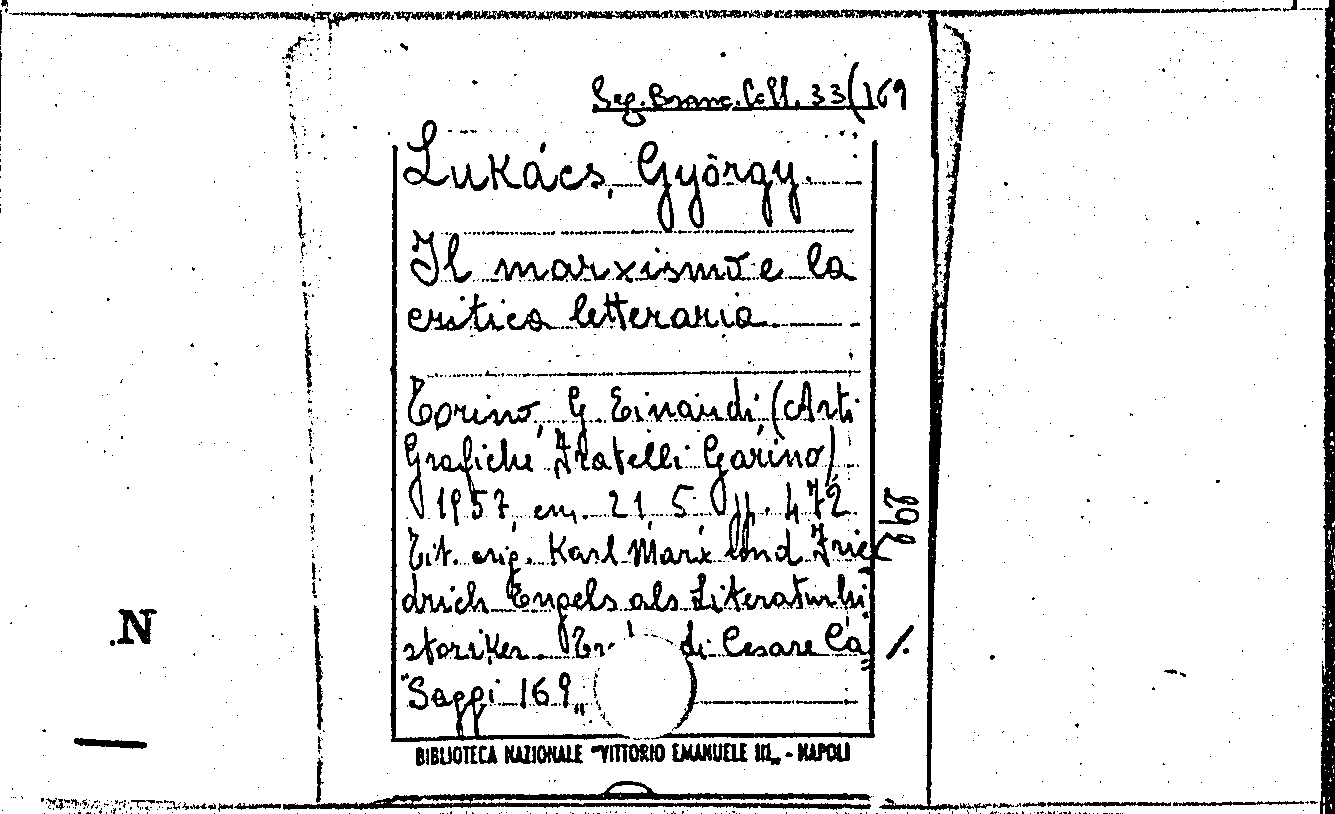 Seg. Branc. Coll. 33(169
Lukács, György.
Il marxismo e la
critica letteraria
Torino, G. Einaudi, (Arti
Grafiche Fratelli Garino)
1957, cm. 21,5 pp. 472
Tit. orig. Karl Marx und Frie
drich Engels als Literaturhi
storiker. di Cesare Ca ./.
"Saggi 169"
.N
BIBLIOTECA NAZIONALE "VITTORIO EMANUELE III" - NAPOLI